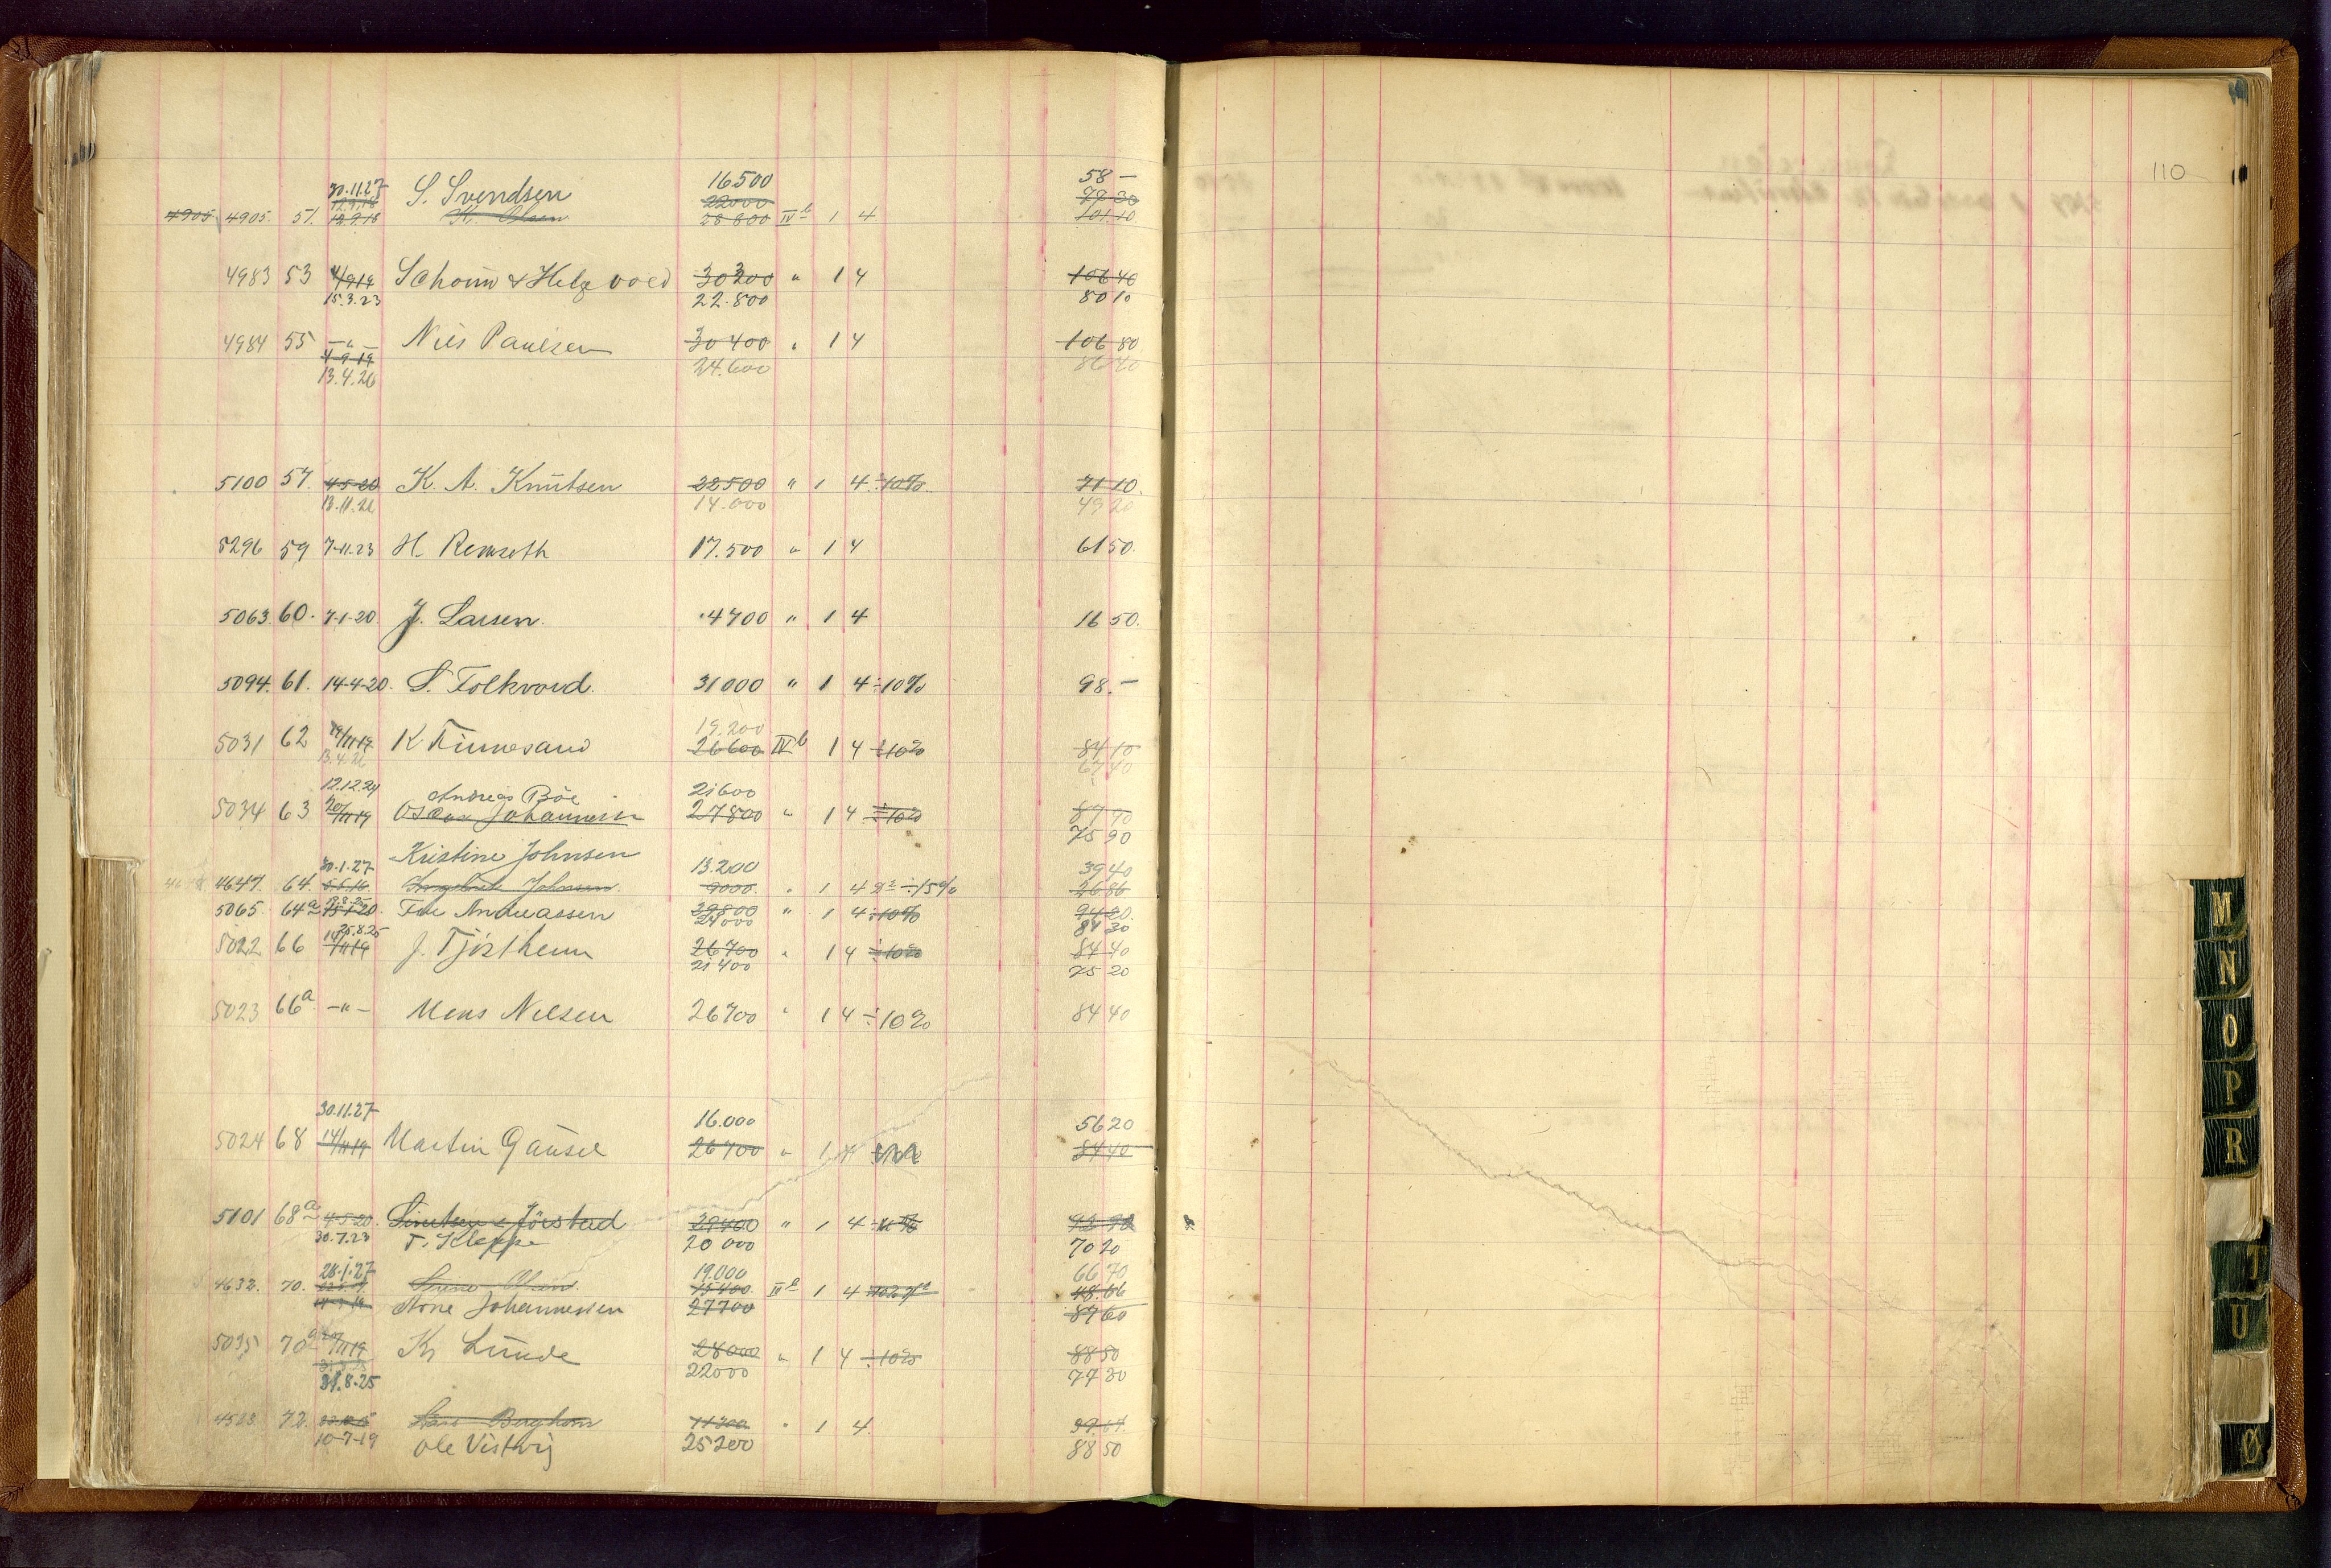 30.11.27 S. Svendsen 16500 58 –
12.9.18 22000 77 30
4905 4905. 51. 12.9.18 K. Olsen 28 800 IV b 1 4 101.10
4983 53 4/9 19 Schoun & Helgevold 30300 " 1 4 106 40
15.3.23 22.800 80 10
4984 55 – " – Nils Paulsen 30400 " 1 4 106 80
4-9-19
13.4.26 24.600 86 40
5100 57. 4-5-20 K. A. Knutsen 22500 " 1 4 ÷ 10% 71 10.
13.11.26 14.000 49 20
5296 59 7-11-23 H. Remseth 17.500 " 1 4 61 50.
5063. 60. 7-1-20 J. Larsen. 4700 " 1 4 16 50.
5094. 61. 14-4-20. S. Folkvord. 31000 " 1 4 ÷ 10% 98. –
19.200
5031 62 19/11 19 K Finnesand 26600 IV b 1 4 ÷ 10% 84 10
13.4.26 67 40
12.12.24 Andreas Böe 21600
5034 63 20/11 19 Oscar Johannesen 27800 " 1 4 ÷ 10% 87 90
75 90
30.1.27 Kristine Johnsen 13.200 39 40
4647. 64. 6.6.16 Johnsen. 9000. " 1 4 ÷ 15% 26.86
5065. 64a 15-1-20. Tore Andreassen 29800 " 1 4 ÷ 10% 94 20.
25.8.25 24000 84 30
5022 66 14/11 19 J. Tjostheim 26700 " 1 4 ÷ 10% 84 40
21 400 75 20
5023 66a – " – Mons Nilsen 26700 " 1 4 ÷ 10% 84 40
30.11.27 16.000 56 20
5024 68 14/11 19 Martin Gausel 26700 " 1 4 84 40
5101 68a 4-5-20. Simonsen & Jörstad 29400 " 1 4 ÷ 10% 92 90
30.7.23 T. Kleppe 20 000 70 20
28.1.27 19.000 66 70
4632. 70. Olsen. 15400 IV b 1 4 48.66
Arne Johannessen 27700 87 60
5035 70a 20/11 19 Kr Lunde 28000 " 1 4 ÷ 10% 88 50
31.8.25 22000 77 30
4523 72. Berghom 11300 " 1 4. 39.64.
10-7-19 Ole Vistvij 25200 88 50
110
M
N
O
P
R
T
U
Ø